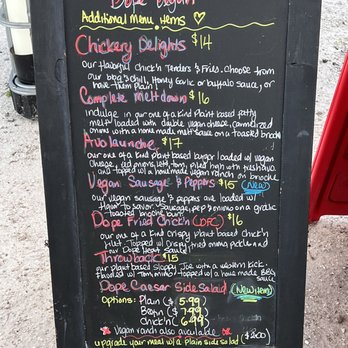 Dope Vegan
Additional Menu Items
Chickery Delights $14
Our flavorful chick'n Tenders & Fries. Choose from
our bbq & chili, Honey Garlic or buffalo sauce, or
have Them Plain!
Complete Meltdown $16
indulge in our one of a Kind Plant based Patty
melt loaded with double vegan cheese, caramelized
onions with a home made melt sauce on a toasted brioche
Avolaunche $17
Our one of a kind plant based burger loaded w/ vegan
and topped w/ a home made vegan ranch on brioche
Vegan Sausage & Peppers $15 (New)
our vegan sausage & peppers are loaded w/
flavor to savor. Sausage, pep & onions on a garlic
toasted
Dope Fried Chick'n (DFC) $16
our one of a kind crispy plant based chick'n
filet. Topped w/ crispy fried onions, pickles and
our Dope Heat sauce!
Throwback $15
our plant based sloppy Joe with a western kick.
Flavored w/ Tom topped w/ a home made BBQ
sauce
Dope Caesar Side Salad (New item)
Options: Plain ($5.99)
($7.99)
Chick'n (6.99)
Vegan ranch also available
upgrade your meal w/ a Plain side salad ($2.00)